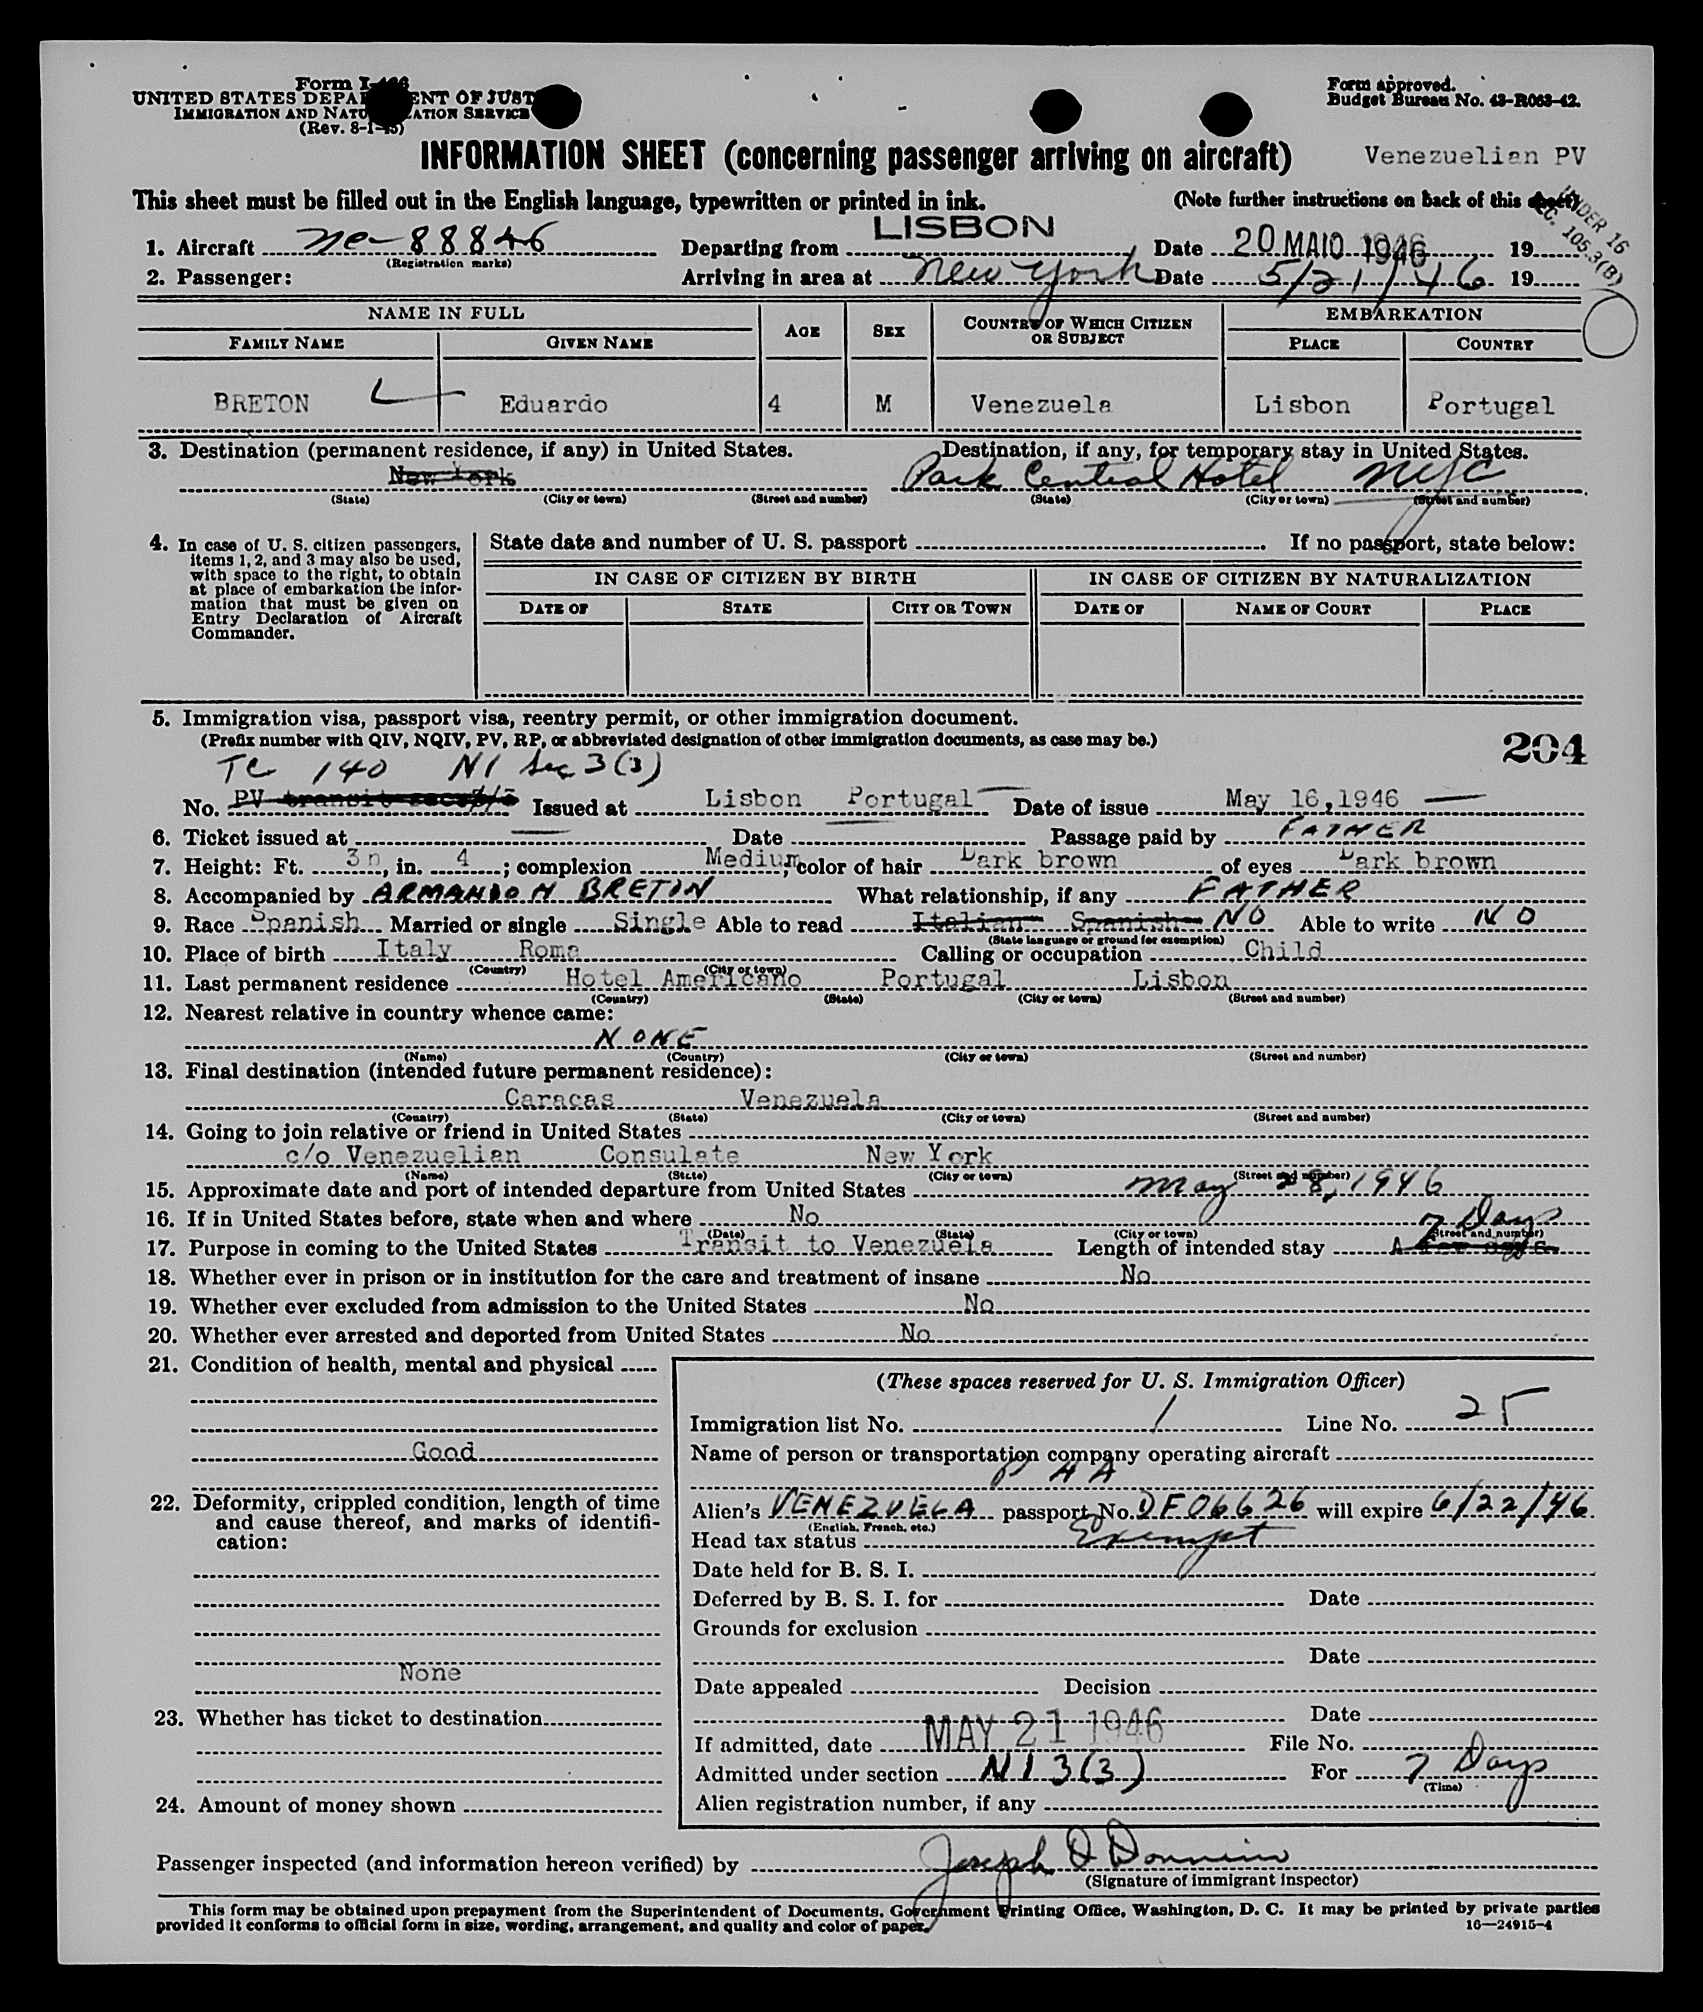 Form I-466
UNITED STATES DEPARTMENT OF JUSTICE
IMMIGRATION AND NATURALIZATION SERVICE
(Rev. 8-1-45)
Form approved.
Budget Bureau No. 43-R063-42.
INFORMATION SHEET (concerning passenger arriving on aircraft)
Venezuelian PV
This sheet must be filled out in the English language, typewritten or printed in ink.
(Note further instructions on back of this sheet)
UNDER 16
SEC. 105.3(B)
1. Aircraft nc-88846 Departing from LISBON Date 20 MAIO 1946 19
(Registration marks)
2. Passenger: Arriving in area at New York Date 5/21/46 19
NAME IN FULL AGE SEX COUNTRY OF WHICH CITIZEN OR SUBJECT EMBARKATION
FAMILY NAME GIVEN NAME PLACE COUNTRY
BRETON Eduardo 4 M Venezuela Lisbon Portugal
3. Destination (permanent residence, if any) in United States. Destination, if any, for temporary stay in United States.
New York Park Central Hotel NYC
(State) (City or town) (Street and number) (State) (City or town) (Street and number)
4. In case of U. S. citizen passengers, items 1, 2, and 3 may also be used, with space to the right, to obtain at place of embarkation the information that must be given on Entry Declaration of Aircraft Commander.
State date and number of U. S. passport . If no passport, state below:
IN CASE OF CITIZEN BY BIRTH IN CASE OF CITIZEN BY NATURALIZATION
DATE OF STATE CITY OR TOWN DATE OF NAME OF COURT PLACE
5. Immigration visa, passport visa, reentry permit, or other immigration document.
(Prefix number with QIV, NQIV, PV, RP, or abbreviated designation of other immigration documents, as case may be.)
204
TC 140 NI Sec 3(3)
No. PV transit Issued at Lisbon Portugal Date of issue May 16,1946
6. Ticket issued at Date Passage paid by FATHER
7. Height: Ft. 3n, in. 4; complexion Medium; color of hair Dark brown of eyes Dark brown
8. Accompanied by ARMANDO H BRETON What relationship, if any FATHER
9. Race Spanish Married or single Single Able to read Italian Spanish NO Able to write NO
(State language or ground for exemption)
10. Place of birth Italy Roma Calling or occupation Child
(Country) (City or town)
11. Last permanent residence Hotel Americano Portugal Lisbon
(Country) (State) (City or town) (Street and number)
12. Nearest relative in country whence came:
NONE
(Name) (Country) (City or town) (Street and number)
13. Final destination (intended future permanent residence):
Caracas Venezuela
(Country) (State) (City or town) (Street and number)
14. Going to join relative or friend in United States
c/o Venezuelian Consulate New York
(Name) (State) (City or town) (Street and number)
15. Approximate date and port of intended departure from United States May 28, 1946
16. If in United States before, state when and where No
(Date) (State) (City or town) (Street and number)
7 Days
17. Purpose in coming to the United States Transit to Venezuela Length of intended stay A few days
18. Whether ever in prison or in institution for the care and treatment of insane No
19. Whether ever excluded from admission to the United States No
20. Whether ever arrested and deported from United States No
21. Condition of health, mental and physical
Good
22. Deformity, crippled condition, length of time and cause thereof, and marks of identification:
None
23. Whether has ticket to destination
24. Amount of money shown
(These spaces reserved for U. S. Immigration Officer)
Immigration list No. 1 Line No. 25
Name of person or transportation company operating aircraft
P A A
Alien's VENEZUELA passport No. DF06626 will expire 6/22/46.
(English, French, etc.)
Head tax status Exempt
Date held for B. S. I.
Deferred by B. S. I. for Date
Grounds for exclusion
Date
Date appealed Decision
Date
If admitted, date MAY 21 1946 File No.
Admitted under section NI 3(3) For 7 Days
(Time)
Alien registration number, if any
Passenger inspected (and information hereon verified) by Joseph D
(Signature of immigrant inspector)
This form may be obtained upon prepayment from the Superintendent of Documents, Government Printing Office, Washington, D. C. It may be printed by private parties
provided it conforms to official form in size, wording, arrangement, and quality and color of paper.
16—24915-4